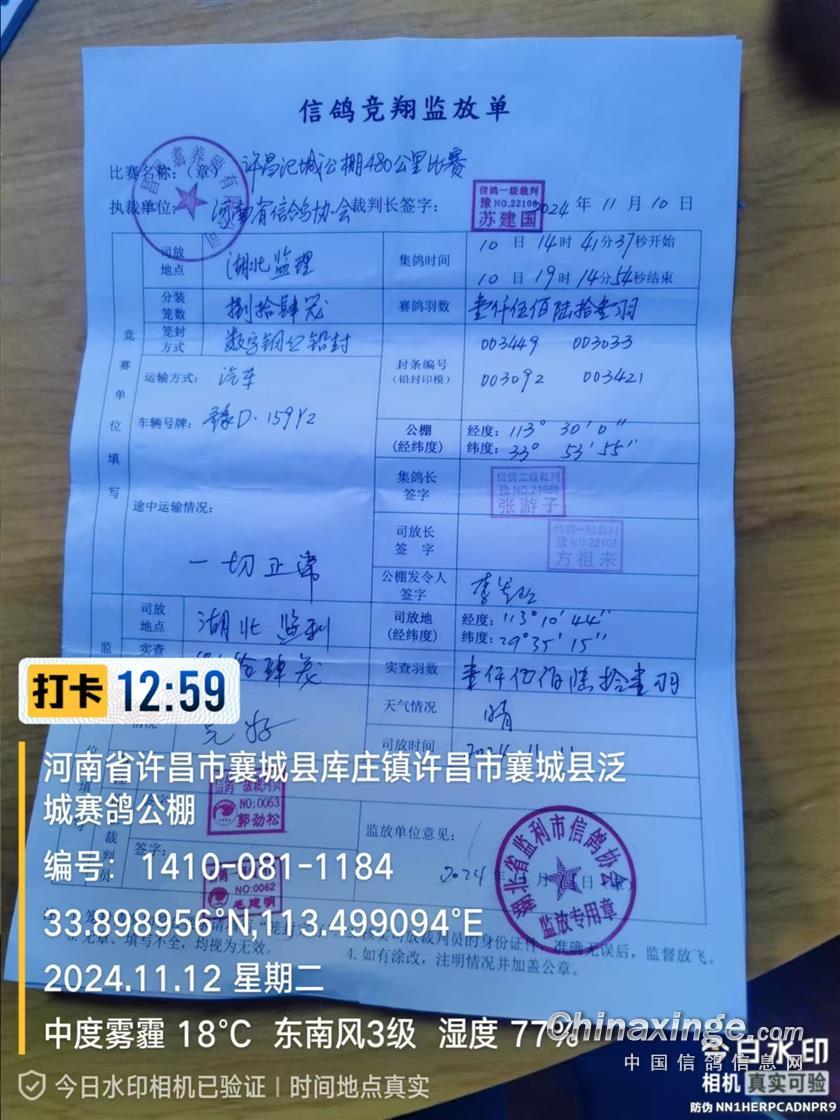 信鸽竞翔监放单
比赛名称：（章）许昌汜城公棚480公里比赛
执裁单位：河南省信鸽协会 裁判长签字：
信鸽一级裁判
豫NO.22106
苏建国
2024年11月10日
司放地点 湖北监理
集鸽时间 10日14时41分37秒开始
10日19时14分54秒结束
分装笼数 捌拾肆笼
赛鸽羽数 壹仟伍佰陆拾壹羽
笼封方式 数字钢丝铅封
封条编号（铅封印模）
003449 003033
003092 003421
竞赛单位填写
运输方式：汽车
车辆号牌：豫D·159Y2
公棚（经纬度）
经度：113° 30′ 0″
纬度：33° 53′ 55″
途中运输情况：
一切正常
集鸽长签字
信鸽二级裁判
张游子
司放长签字
信鸽一级裁判
豫NO.22107
方祖来
公棚发令人签字
司放地点 湖北监利
司放地（经纬度）
经度：113° 10′ 44″
纬度：29° 35′ 15″
实查
实查羽数 壹仟伍佰陆拾壹羽
天气情况 晴
完好
司放时间
NO:0053
郭劲松
签字：
NO:0062
毛建明
监放单位意见：
湖北省监利市信鸽协会
监放专用章
2024年
3.无章、填写不全，均视为无效。
司放裁判员的身份证件，准确无误后，监督放飞。
4.如有涂改，注明情况并加盖公章。
打卡 12:59
河南省许昌市襄城县库庄镇许昌市襄城县泛
城赛鸽公棚
编号：1410-081-1184
33.898956°N,113.499094°E
2024.11.12 星期二
中度雾霾 18℃ 东南风3级 湿度 77%
今日水印相机已验证 | 时间地点真实
Chinaxinge.com
中国信鸽信息网
今日水印
相机 真实可验
防伪 NN1HERPCADNPR9